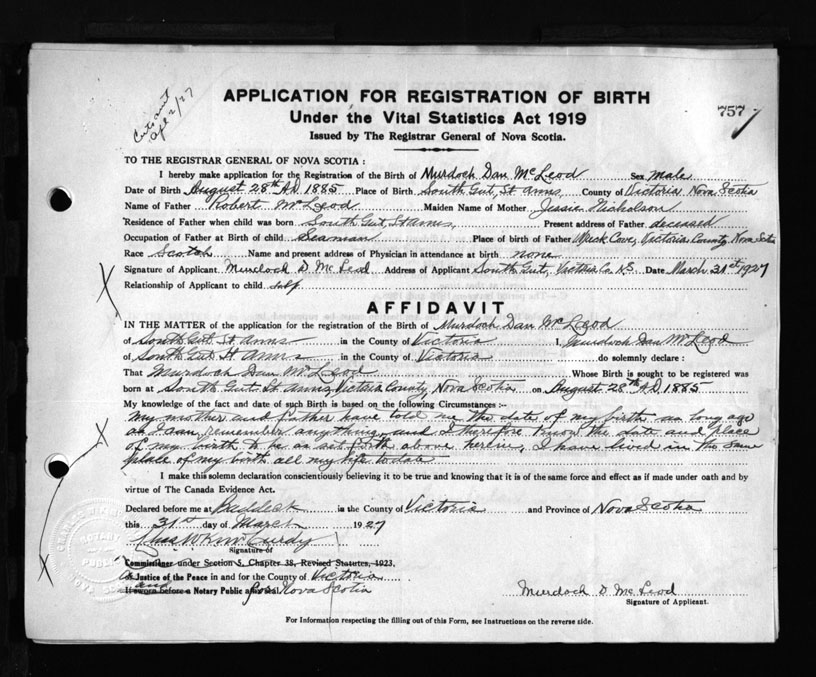 APPLICATION FOR REGISTRATION OF BIRTH
757
Under the Vital Statistics Act 1919
Issued by The Registrar General of Nova Scotia.
TO THE REGISTRAR GENERAL OF NOVA SCOTIA :
I hereby make application for the Registration of the Birth of Murdoch Dan McLeod Sex male
Date of Birth August 28th A.D. 1885 Place of Birth South Gut, St Anns County of Victoria Nova Scotia
Name of Father Robert McLeod Maiden Name of Mother Jessie Nicholson
Residence of Father when child was born South Gut, St Anns, Present address of Father deceased
Occupation of Father at Birth of child Seaman Place of birth of Father Wreck Cove, Victoria County, Nova Scotia
Race Scotch Name and present address of Physician in attendance at birth none
Signature of Applicant Murdoch D. McLeod Address of Applicant South Gut, Victoria Co. N.S. Date March 31st 1927
Relationship of Applicant to child self
AFFIDAVIT
IN THE MATTER of the application for the registration of the Birth of Murdoch Dan McLeod
of South Gut St Anns in the County of Victoria I, Murdoch Dan McLeod
of South Gut St Anns in the County of Victoria do solemnly declare :
That Murdoch Dan McLeod Whose Birth is sought to be registered was
born at South Gut St. Anns, Victoria County, Nova Scotia on August 28th A.D. 1885
My knowledge of the fact and date of such Birth is based on the following Circumstances :-
My mother and father have told me the date of my birth as long ago
as I can remember anything, and I therefore know the date and place
of my birth to be as set forth above herein, I have lived in the same
place of my birth all my life to date
I make this solemn declaration conscientiously believing it to be true and knowing that it is of the same force and effect as if made under oath and by
virtue of The Canada Evidence Act.
Declared before me at Baddeck in the County of Victoria and Province of Nova Scotia
this 31st day of March 1927
Signature of
Commissioner under Section 5, Chapter 38, Revised Statutes, 1923,
Justice of the Peace in and for the County of Victoria
If sworn before a Notary Public and for Nova Scotia
Murdoch D McLeod
Signature of Applicant.
For Information respecting the filling out of this Form, see Instructions on the reverse side.